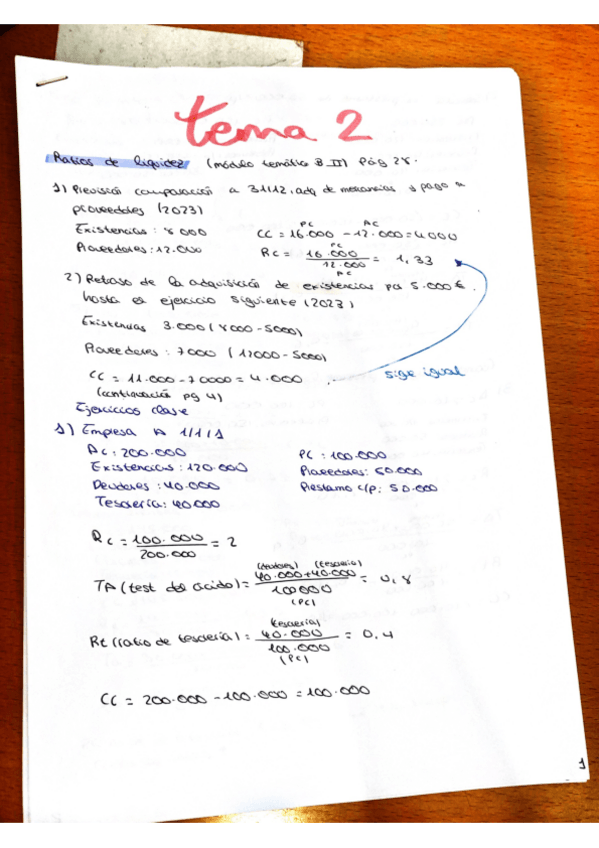 tema 2
Ratios de liquidez (módulo temático B_II) Pág 28.
1) Previsión comparación a 31/12, adq de mercancías y pago a
proveedores (2023)
Existencias : 8 000
PC AC
CC = 16.000 - 12.000 = 4000
Proveedores : 12.000
PC
Rc = 16.000 / 12.000 = 1,33
PC
2) Retraso de la adquisición de existencias por 5.000€
hasta el ejercicio siguiente (2023)
Existencias 3.000 (8000 - 5000)
Proveedores : 7000 (12000 - 5000)
CC = 11.000 - 70000 = 4.000
sige igual
(continuación pg 4)
Ejercicios clase
1) Empresa A 1/1/1
AC : 200.000 PC : 100.000
Existencias : 120.000 Proveedores : 50.000
Deudores : 40.000 Préstamo c/p : 50.000
Tesorería : 40.000
Rc = 100.000 / 200.000 = 2
(deudores) (tesorería)
TA (test del ácido) = 40.000+40.000 / 100000 = 0,8
(PC)
tesorería)
Rt (ratio de tesorería) = 40.000 / 100.000 = 0,4
(PC)
CC = 200.000 - 100.000 = 100.000
1